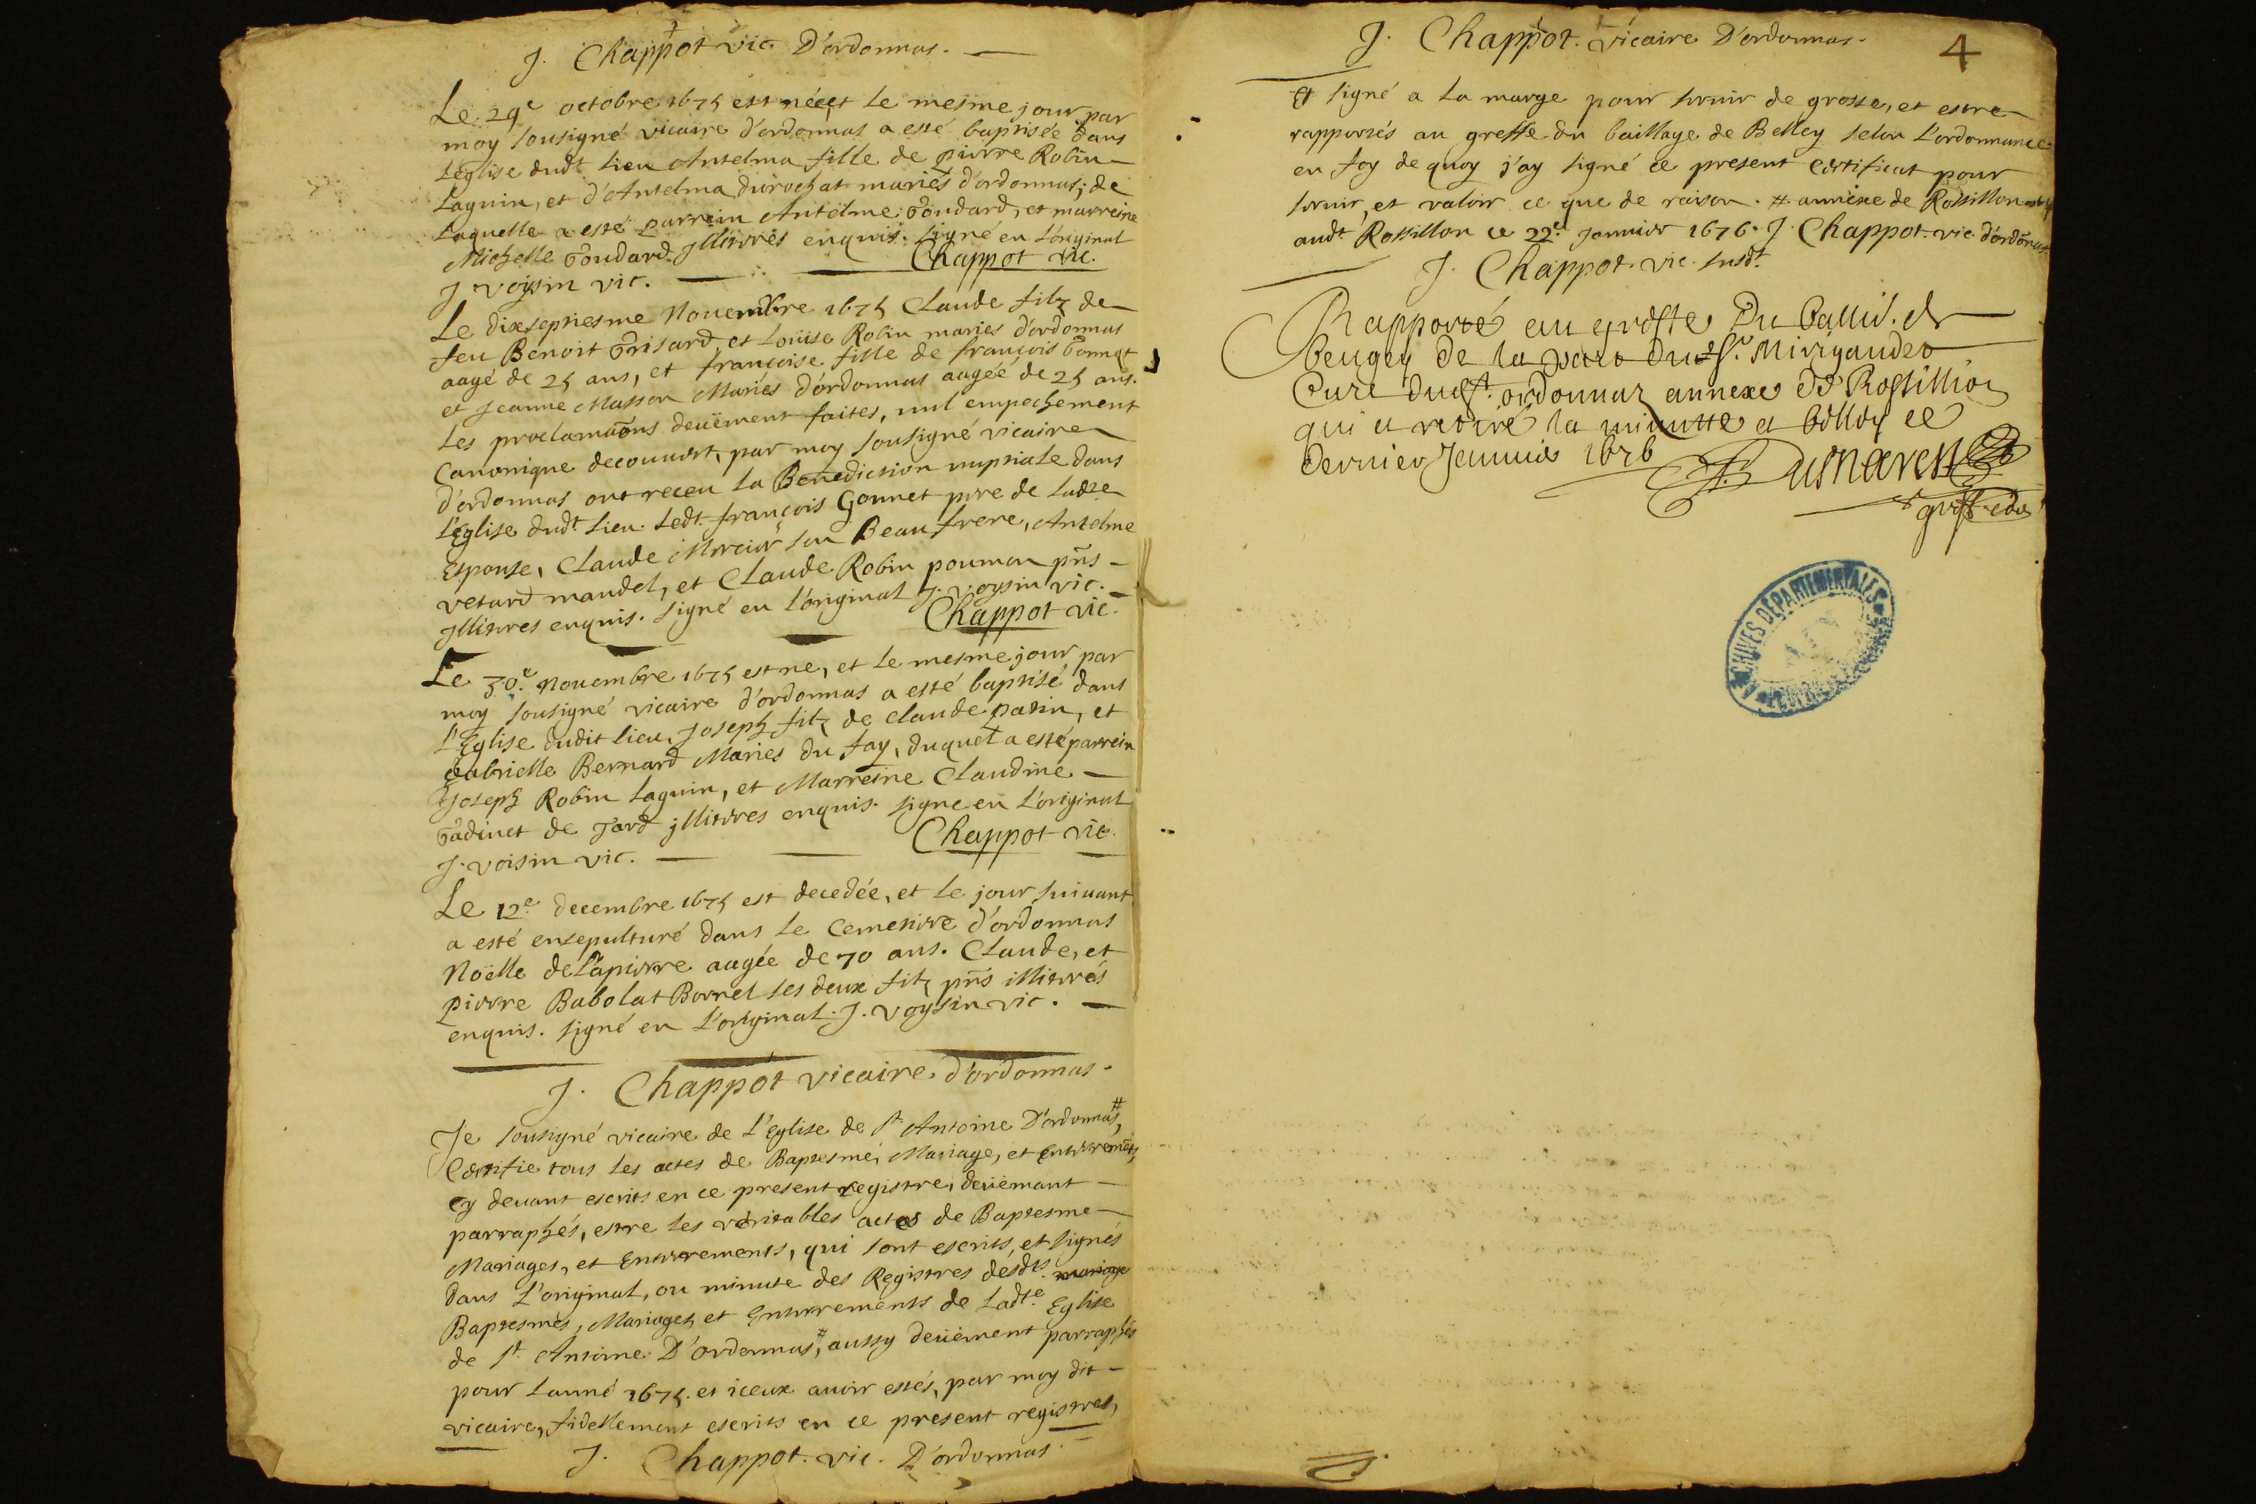 J. Chappot vic D'ordonnas.
Le 29e octobre 1675 est néé, et le mesme jour par
moy sousigné vicaire d'ordonnas a esté baptisée dans
l'Eglise dudt lieu Antelma fille de pierre Robin
Laguin, et d'Antelma durochat mariés d'ordonnas; de
Laquelle a esté parrein Antelme Goudard, et marreine
Michelle Goudard Jllitrés enquis. signé en L'original
J voysin vic. Chappot vic.
Le dixseptiesme Nouembre 1675 Claude filz de
feu Benoit Grisard, et Louise Robin maries d'ordonnas
aagé de 25 ans, et françoise fille de françois Gonnet
et Jeanne Masson Mariés d'ordonnas aagéé de 25 ans.
Les proclamaons deuëment faites, nul empechement
Canonique decouuert, par moy sousigné vicaire
d'ordonnas ont receu la Benediction nuptiale dans
l'Eglise dudt lieu. Ledt françois Gonnet pere de ladte
Espouse, Claude Mercier son Beau frere, Antelme
vetard mandet, et Claude Robin poumon pns
Jllitres enquis. signé en l'original J. voysin vic.
Chappot vic.
Le 30e Nouembre 1675 est ne, et le mesme jour par
moy sousigné vicaire d'ordonnas a esté baptisé dans
l'Eglise dudit lieu, Joseph filz de Claude patin, et
Gabrielle Bernard Mariés du fay, duquel a esté parrein
Joseph Robin Laguin, et Marreine Claudine
Gadinet de Jard jllitres enquis. signe en L'original
J. voisin vic. Chappot vic.
Le 12e decembre 1675 est decedée, et le jour suiuant
a esté ensepulturé dans le Cemetire d'ordonnas
Noëlle deLapierre aagée de 70 ans. Claude, et
pierre Babolat Borrel ses deux filz pns illitrés
enquis. signé en L'original. J. voysin vic.
J. Chappot vicaire d'ordonnas.
Je sousigné vicaire de l'Eglise de st Antoine D'ordonnas#,
Certifie tous les actes de Baptesme, Mariage, et Enterremets,
cy deuant escrits en ce present registre, deuëmant
parraphés, estre les véritables actes de Baptesme
Mariages, et Enterrements, qui sont escrits, et signés
dans L'original, ou minute des Registres desdts mariage
Baptesmes, Mariages et Enterrements de Ladte Eglise
de st Antoine D'ordonnas#, aussy deuëment parraphés
pour L'anné 1675. et iceux auoir estés, par moy dit
vicaire, fidellement escrits en ce present registres,
J. Chappot. vic. D'ordonnas
J. Chappot. vicaire D'ordonnas.
4
Et signé a la marge pour seruir de grosse, et estre
rapportés au greffe du baillage de Belley selon L'ordonnance
en foy de quoy j'ay signé ce present Certificat pour
seruir, et valoir ce que de raison. # annexe de Rossillon
audt Rossillon ce 22e Januier 1676. J. Chappot. vic d'ordonas
J. Chappot. vic. susdt
Rapporté au greffe Du Balliage de
beugey de la part du sr
Curé dudt ordonnaz annexe de Rossillion
qui a retiré la minutte a belley ce
dernier Januier 1676
ARCHIVES DÉPARTEMENTALES
AIN